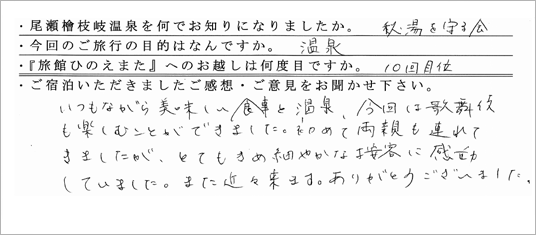 ・尾瀬檜枝岐温泉を何でお知りになりましたか。 秘湯を守る会
・今回のご旅行の目的はなんですか。 温泉
・『旅館ひのえまた』へのお越しは何度目ですか。 10回目位
・ご宿泊いただきましたご感想・ご意見をお聞かせ下さい。
いつもながら美味しい食事と温泉、今回は歌舞伎
も楽しむことができました。初めて両親も連れて
きましたが、とてもきめ細やかな接客に感動
していました。また近々来ます。ありがとうございました。